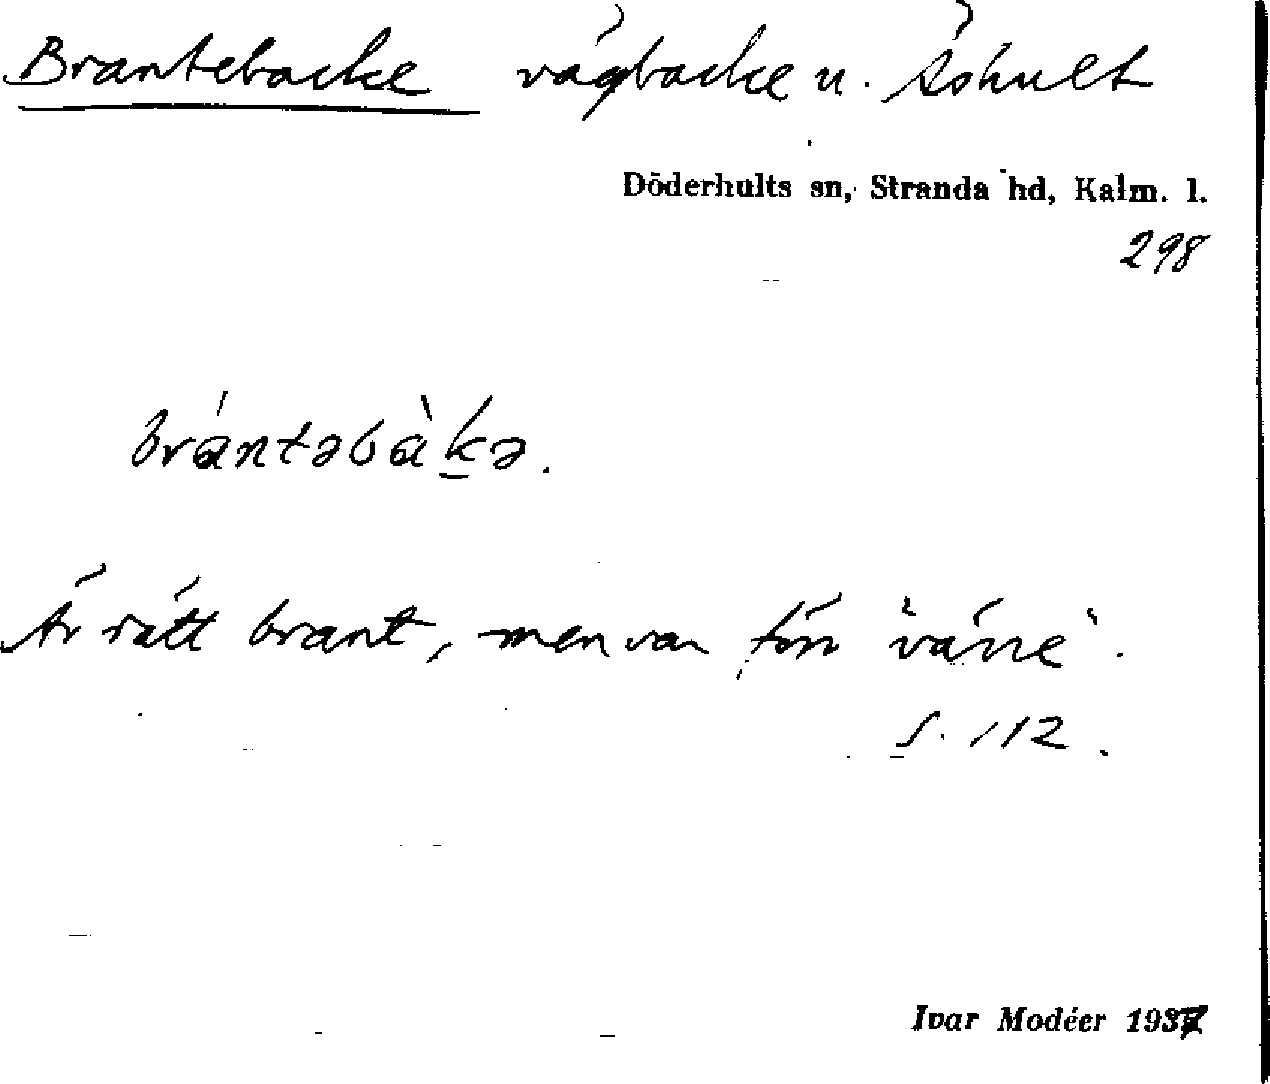 Brantebacke vägbacke u. Åshult
Döderhults sn, Stranda hd, Kalm. l.
298
brántəbàk̲ə.
Är rätt brant, men var förr "värre".
S. 112.
Ivar Modéer 1937